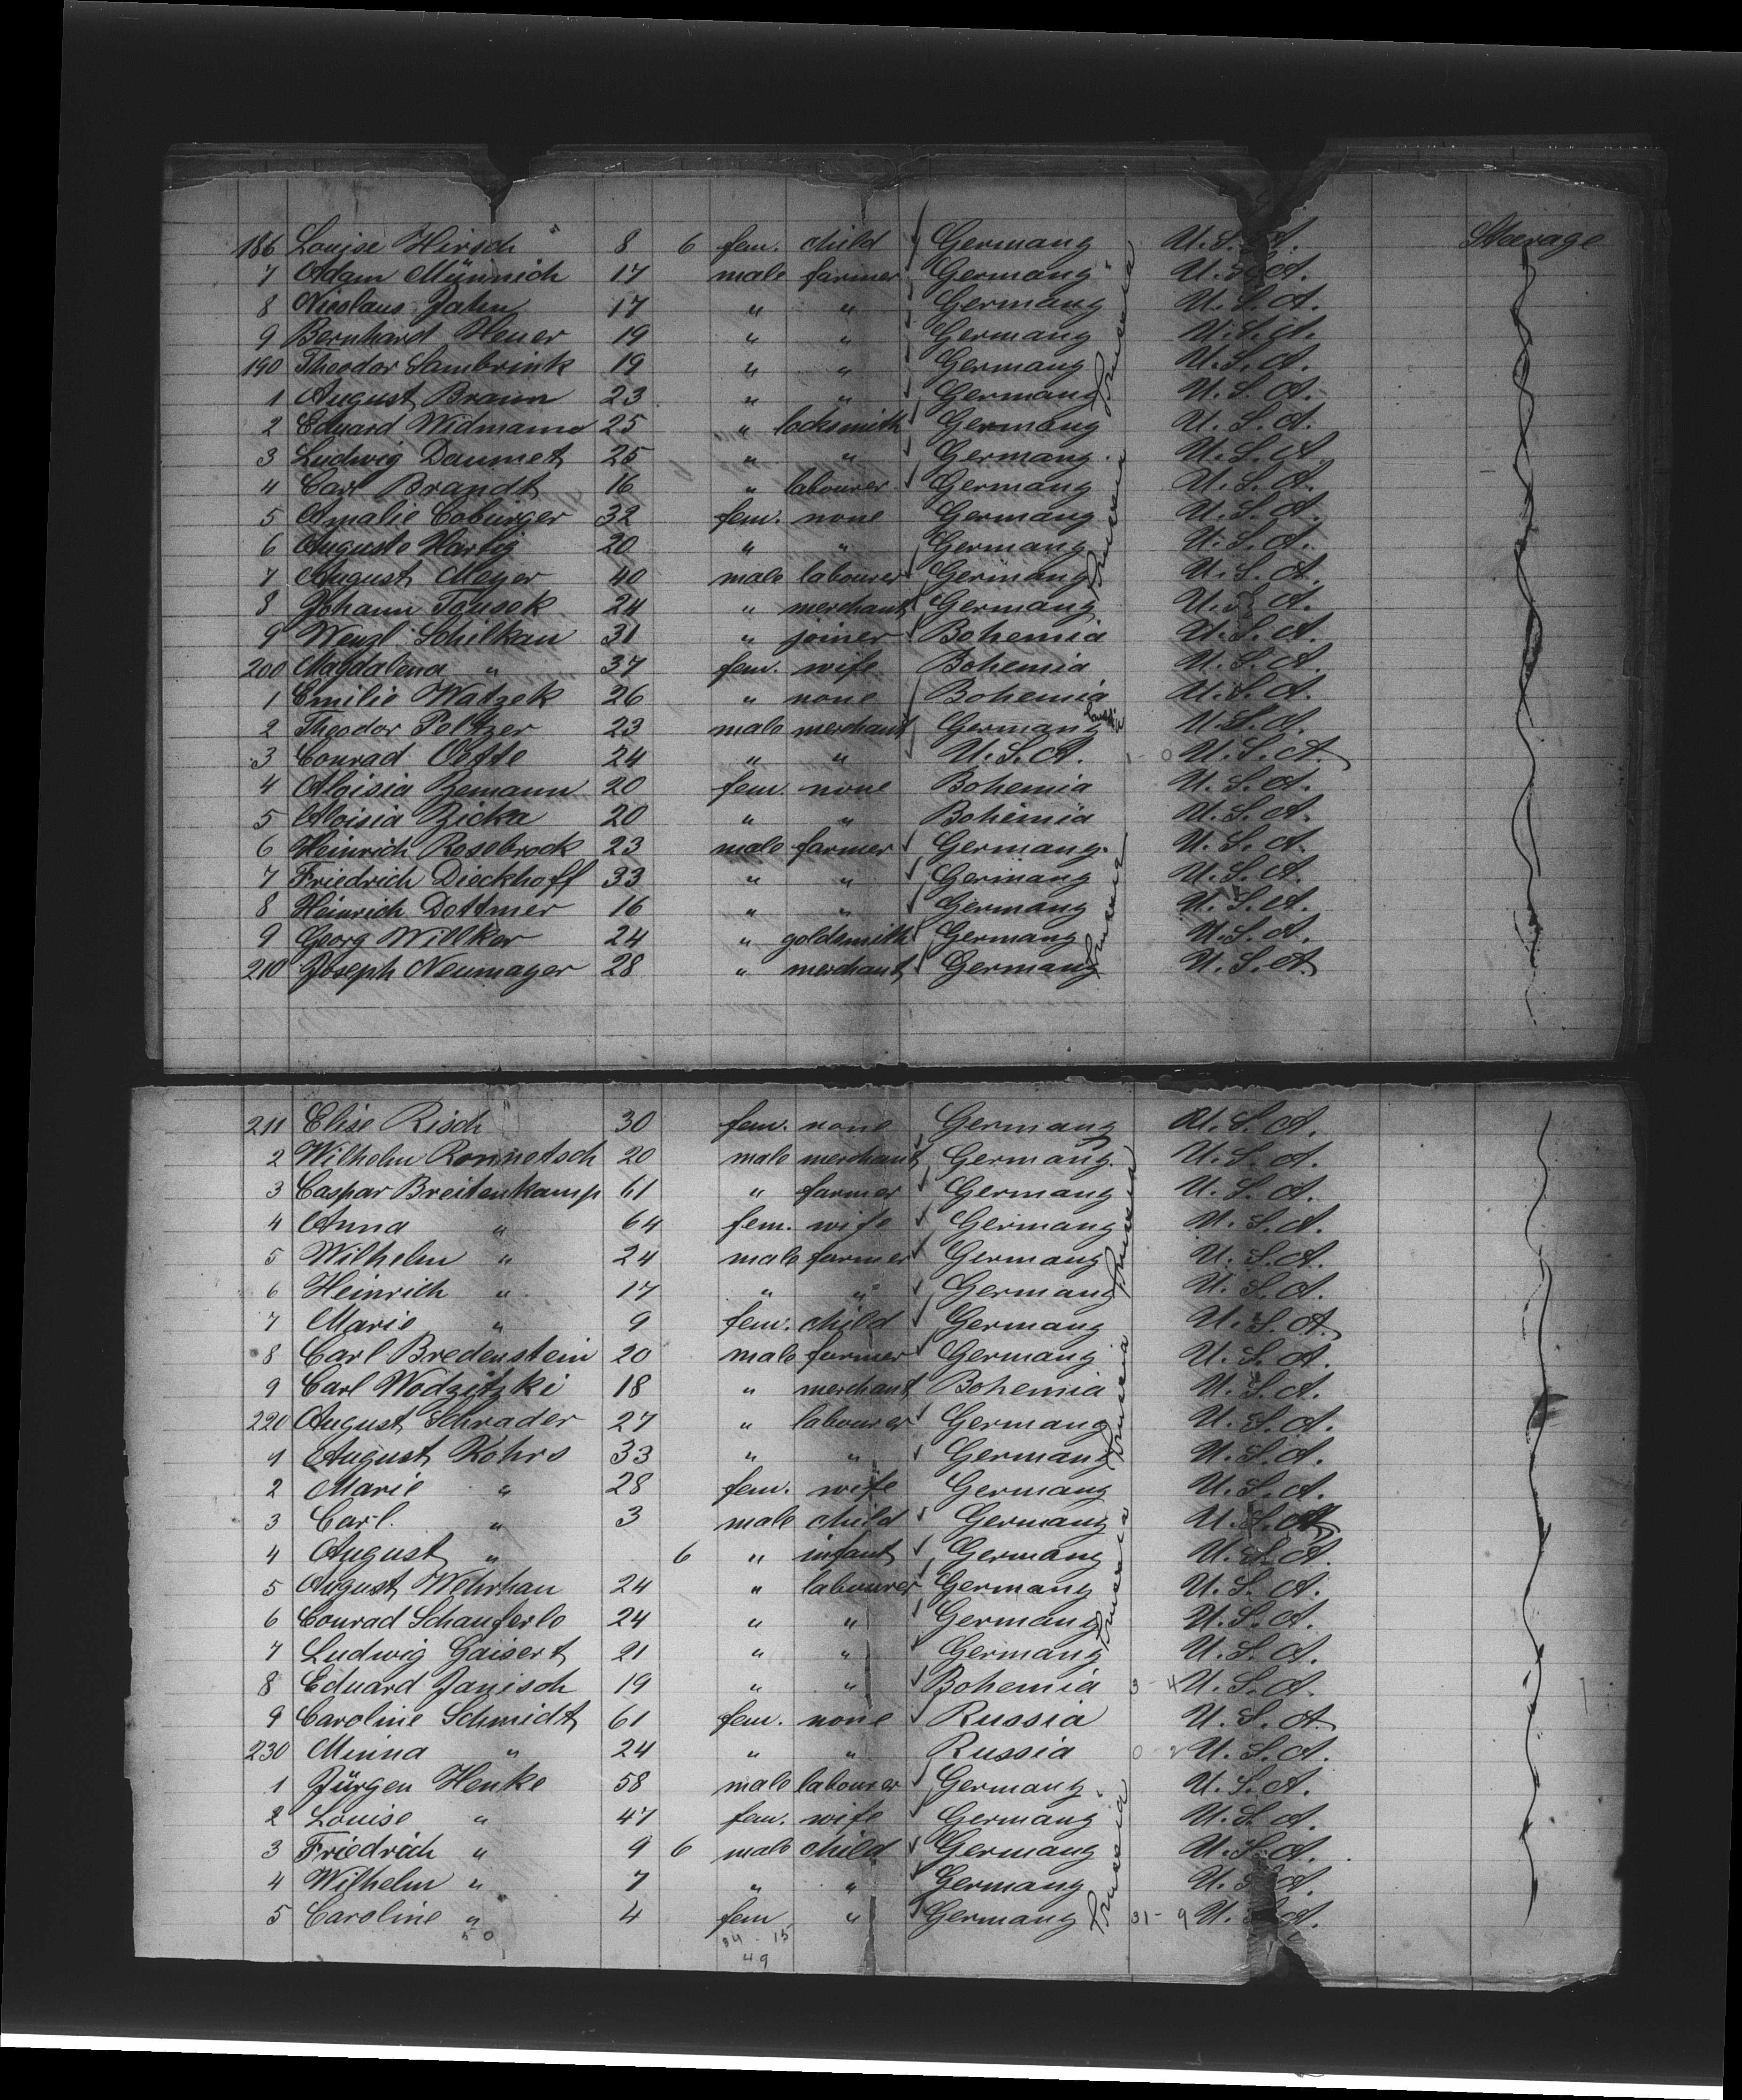 186 Louise Hirsch 8 6 fem. child Germany U.S.A. Steerage
7 Adam Münnich 17 male farmer Germany U.S.A.
8 Nicolaus Jahn 17 " " Germany U.S.A.
9 Bernhard Heuer 19 " " Germany U.S.A.
190 Theodor Lambrink 19 " " Germany U.S.A.
1 August Braun 23 " " Germany U.S.A.
2 Eduard Widmann 25 " locksmith Germany U.S.A.
3 Ludwig Daumet 25 " " Germany U.S.A.
4 Carl Brandt 16 " labourer Germany U.S.A.
5 Amalie Coburger 32 fem. none Germany U.S.A.
6 Auguste Hartig 20 " " Germany U.S.A.
7 August Meyer 40 male labourer Germany U.S.A.
8 Johann Tousek 24 " merchant Germany U.S.A.
9 Wenzl Schilkan 31 " joiner Bohemia U.S.A.
200 Magdalena " 37 fem. wife Bohemia U.S.A.
1 Emilie Watzek 26 " none Bohemia U.S.A.
2 Theodor Peltzer 23 male merchant Germany U.S.A.
3 Conrad Oefte 24 " " U.S.A. 1 - 0 U.S.A.
4 Aloisia Zemann 20 fem. none Bohemia U.S.A.
5 Aloisia Zicka 20 " " Bohemia U.S.A.
6 Heinrich Rosebrock 23 male farmer Germany U.S.A.
7 Friedrich Dieckhoff 33 " " Germany U.S.A.
8 Heinrich Dettmer 16 " " Germany U.S.A.
9 Georg Willker 24 " goldsmith Germany U.S.A.
210 Joseph Neumayer 28 " merchant Germany U.S.A.
Prussia
Prussia
Prussia
211 Elise Risch 30 fem. none Germany U.S.A.
2 Wilhelm Ronnetsch 20 male merchant Germany U.S.A.
3 Caspar Breitenkamp 61 " farmer Germany U.S.A.
4 Anna " 64 fem. wife Germany U.S.A.
5 Wilhelm " 24 male farmer Germany U.S.A.
6 Heinrich " 17 " " Germany U.S.A.
7 Marie " 9 fem. child Germany U.S.A.
8 Carl Bredenstein 20 male farmer Germany U.S.A.
9 Carl Wodzitzki 18 " merchant Bohemia U.S.A.
220 August Schrader 27 " labourer Germany U.S.A.
1 August Kohrs 33 " " Germany U.S.A.
2 Marie " 28 fem. wife Germany U.S.A.
3 Carl " 3 male child Germany U.S.A.
4 August " 6 " infant Germany U.S.A.
5 August Wehrhan 24 " labourer Germany U.S.A.
6 Conrad Schauferle 24 " " Germany U.S.A.
7 Ludwig Gaisert 21 " " Germany U.S.A.
8 Eduard Janisch 19 " " Bohemia 3 - 4 U.S.A.
9 Caroline Schmidt 61 fem. none Russia U.S.A.
230 Minna " 24 " " Russia 0 - 2 U.S.A.
1 Jürgen Henke 58 male labourer Germany U.S.A.
2 Louise " 47 fem. wife Germany U.S.A.
3 Friedrich " 9 6 male child Germany U.S.A.
4 Wilhelm " 7 " " Germany U.S.A.
5 Caroline " 4 fem " Germany 31 - 9 U.S.A.
Prussia
Prussia
Prussia
Prussia
50 34 - 15
49